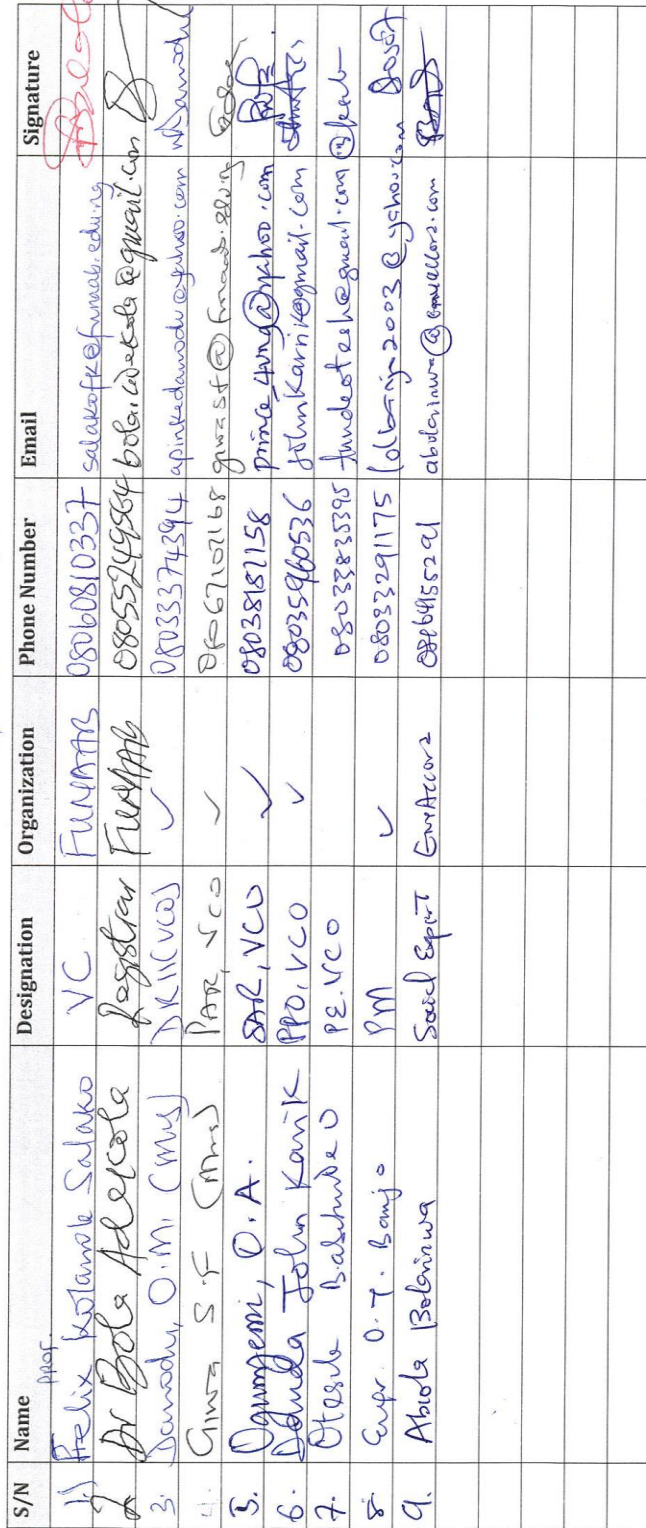 S/N Name Designation Organization Phone Number Email Signature
1) Prof. Felix Kolawole Salako VC FUNAAB 08060810337 salakofk@funaab.edu.ng
2 Dr Bola Adekola Registrar FUNAAB 08055249564 bola.adekola@gmail.com
3. Damodu, O.M. (Mrs) DR II (VCO) ✓ 08033374394 apinkedamodu@yahoo.com
4. Giwa S.F (Mrs) PAR, VCO ✓ 08067102168 giwasf@funaab.edu.ng
5. Ogunyemi, O.A. SAR, VCO ✓ 08038187158 prince_4ung@yahoo.com
6. Dauda John Karik PPO, VCO ✓ 08035960536 johnkarik@gmail.com
7. Otesile Babatunde O PE. VCO 08033835395 tundeotesh@gmail.com
8 Engr. O.T. Banjo PM ✓ 08033291175 2003@yahoo.com
9. Abiola Bolarinwa Social Expert EnvAccord abolarinwa@envaccord.com